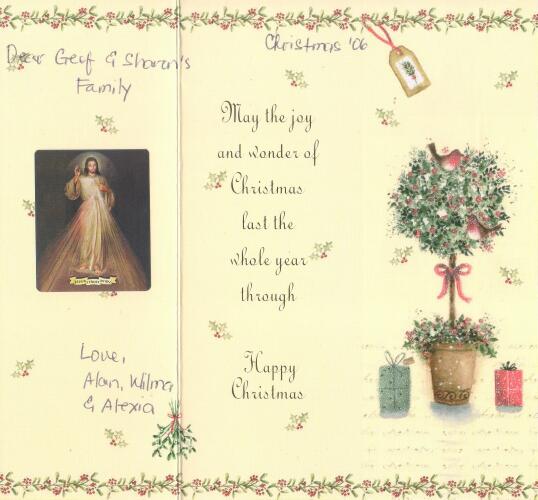 Dear Geof & Sharon's
Family
Love,
Alan, Wilma
& Alexia
Christmas '06
May the joy
and wonder of
Christmas
last the
whole year
through
Happy
Christmas